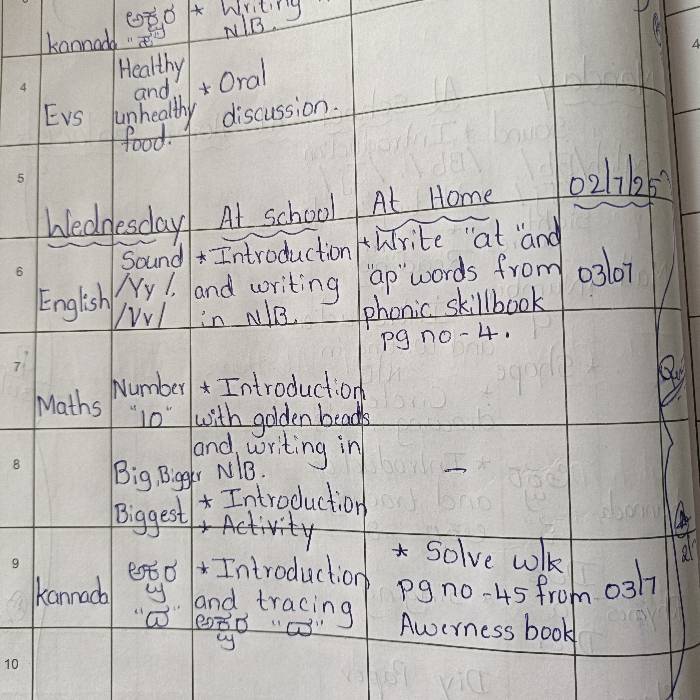 ಅಕ್ಷರ * Writing
kannada N/B.
4
Healthy
and * Oral
Evs unhealthy discussion.
food.
5
Wednesday At school At Home 02/7/25
6
English Sound /Yy/, /Vv/
* Introduction
and writing
in N/B.
* Write "at" and
"ap" words from 03/07
phonic skillbook
pg no - 4.
7
Maths Number "10"
* Introduction
with golden beads
and writing in
N/B.
8
Big, Bigger
Biggest
* Introduction
* Activity
–
9
kannada ಅಕ್ಷರ
* Introduction
and tracing
ಅಕ್ಷರ
* Solve w/k
pg no - 45 from 03/7
Awerness book
10